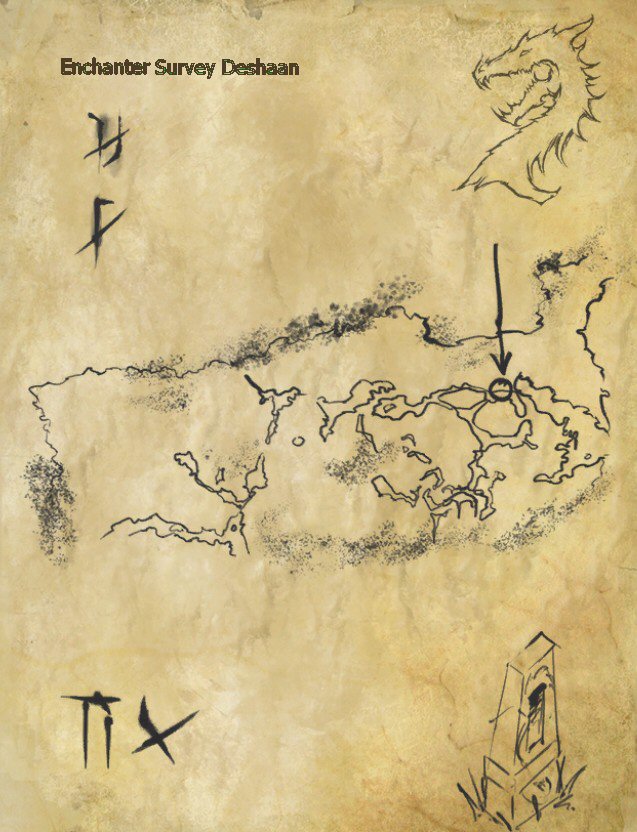 Enchanter Survey Deshaan